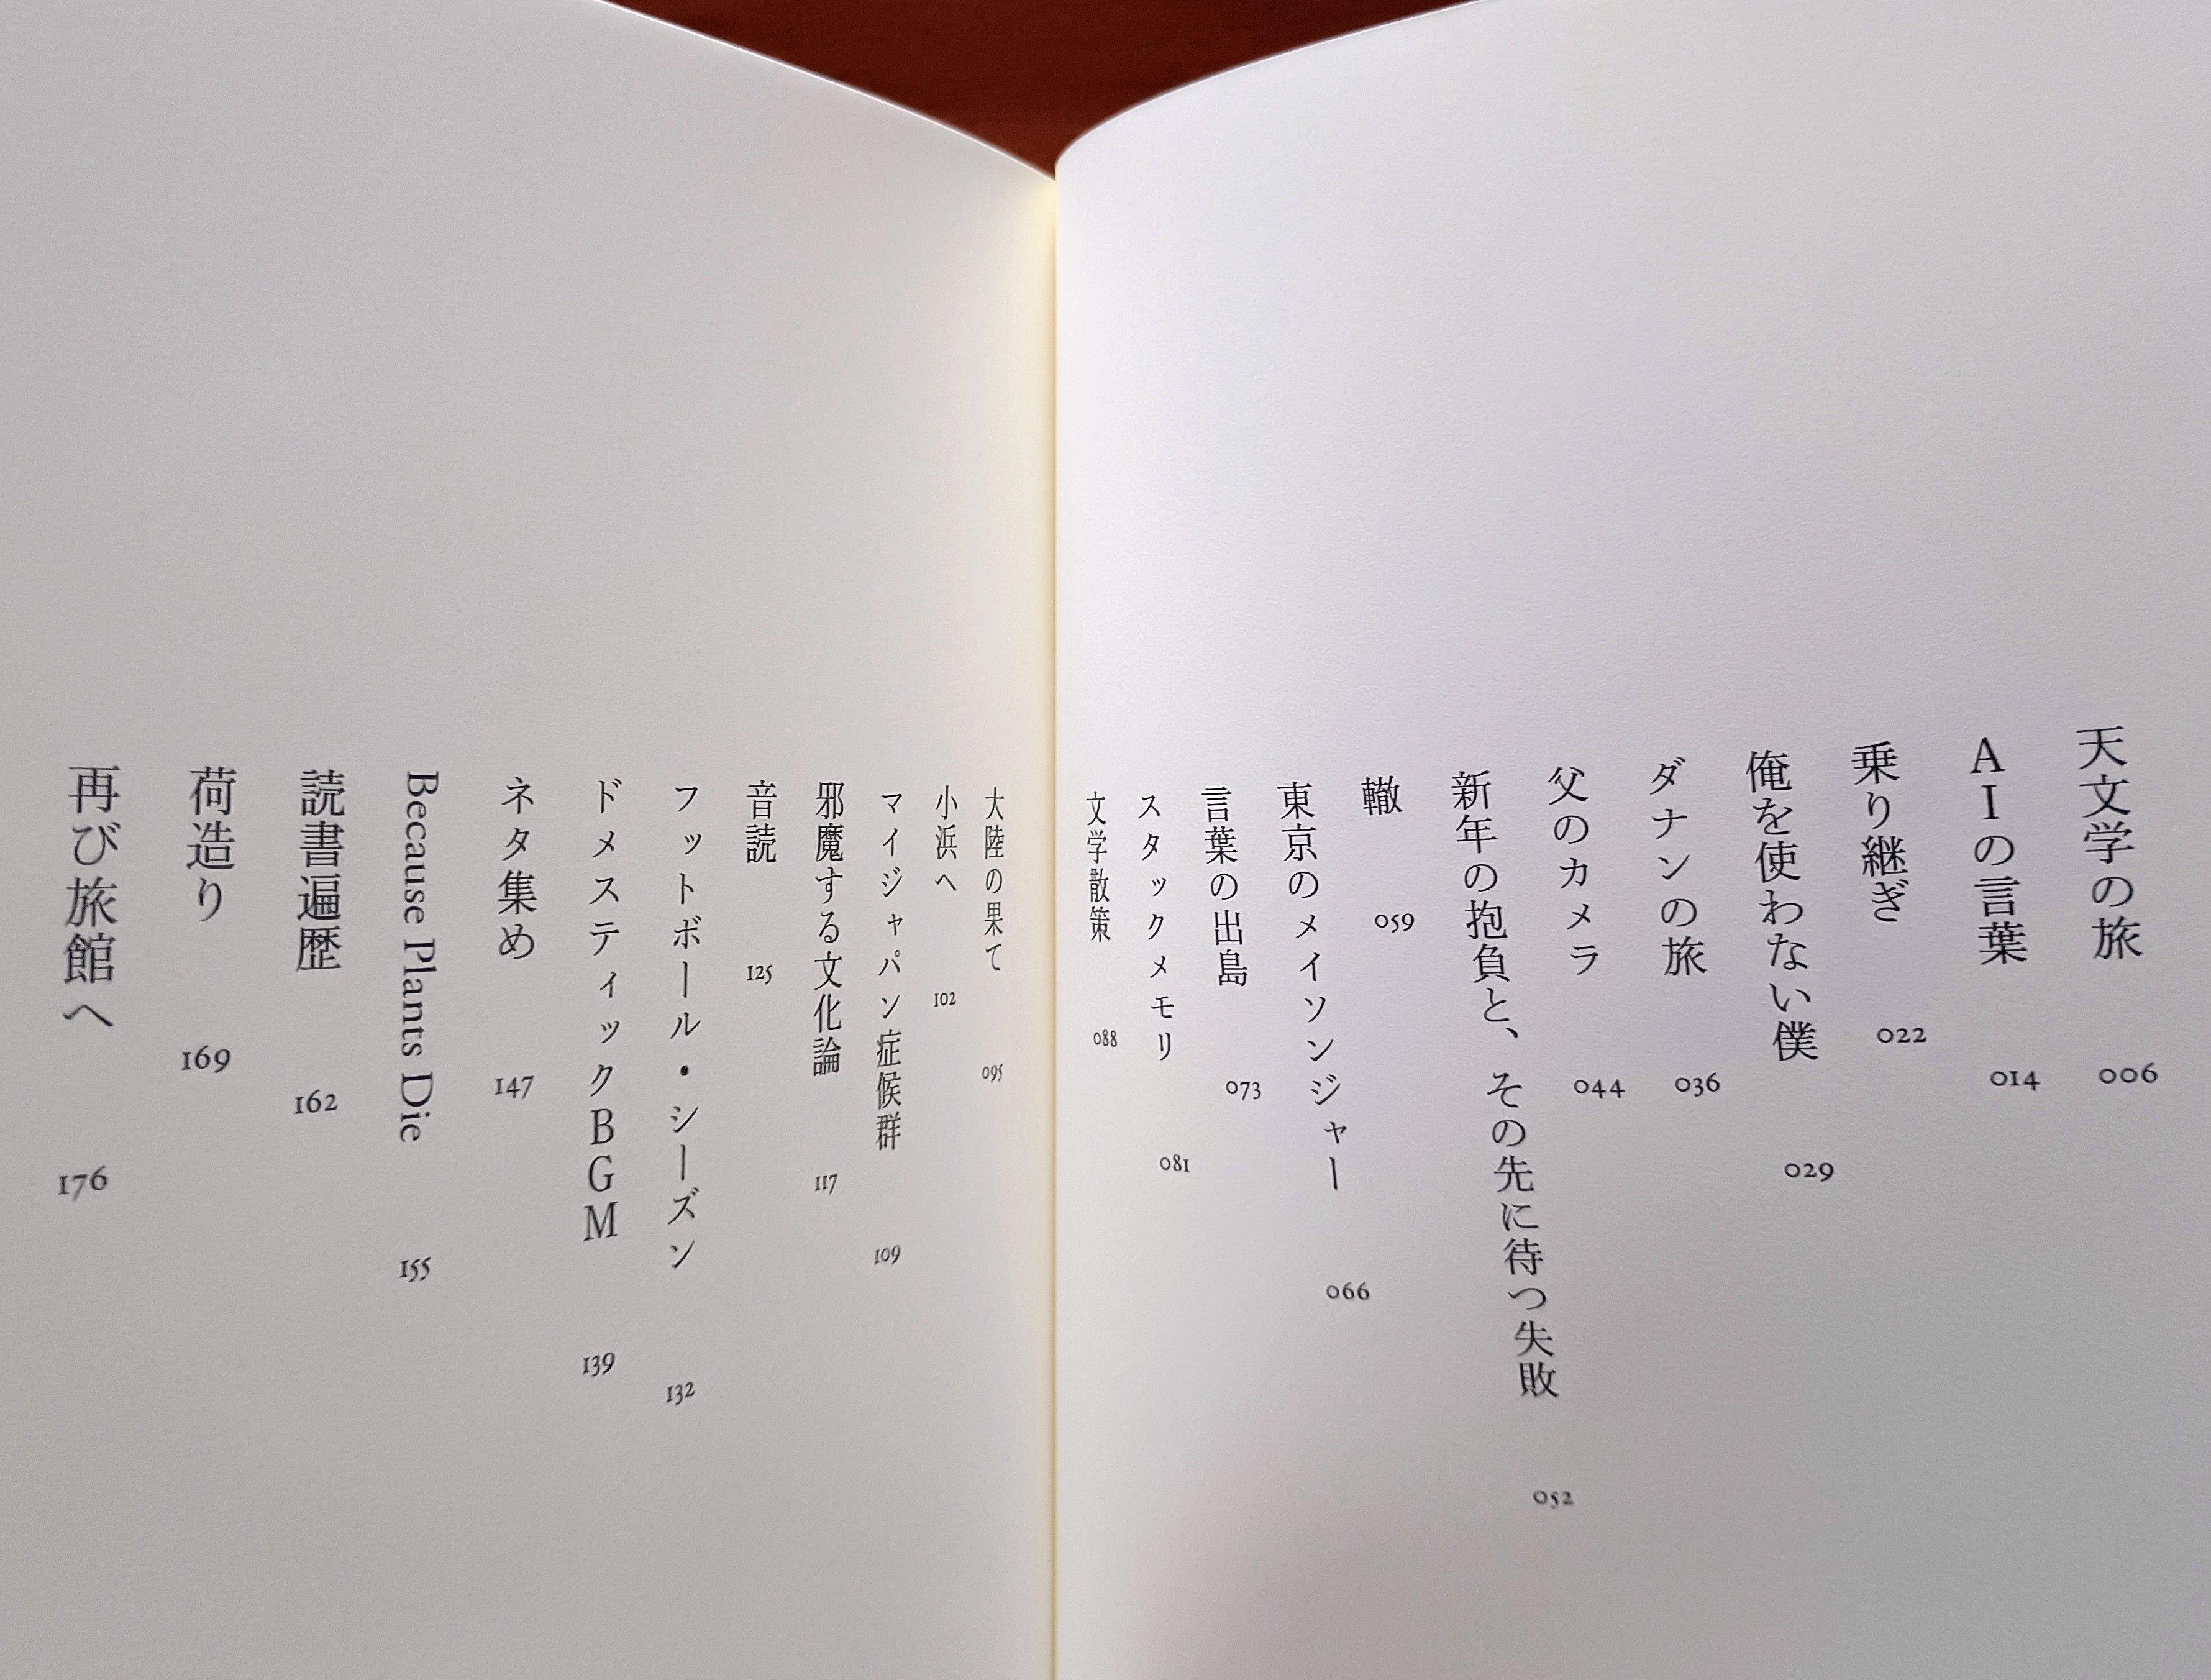 天文学の旅 006
AIの言葉 014
乗り継ぎ 022
俺を使わない僕 029
ダナンの旅 036
父のカメラ 044
新年の抱負と、その先に待つ失敗 052
轍 059
東京のメイソンジャー 066
言葉の出島 073
スタックメモリ 081
文学散策 088
大陸の果て 095
小浜へ 102
マイジャパン症候群 109
邪魔する文化論 117
音読 125
フットボール・シーズン 132
ドメスティックBGM 139
ネタ集め 147
Because Plants Die 155
読書遍歴 162
荷造り 169
再び旅館へ 176